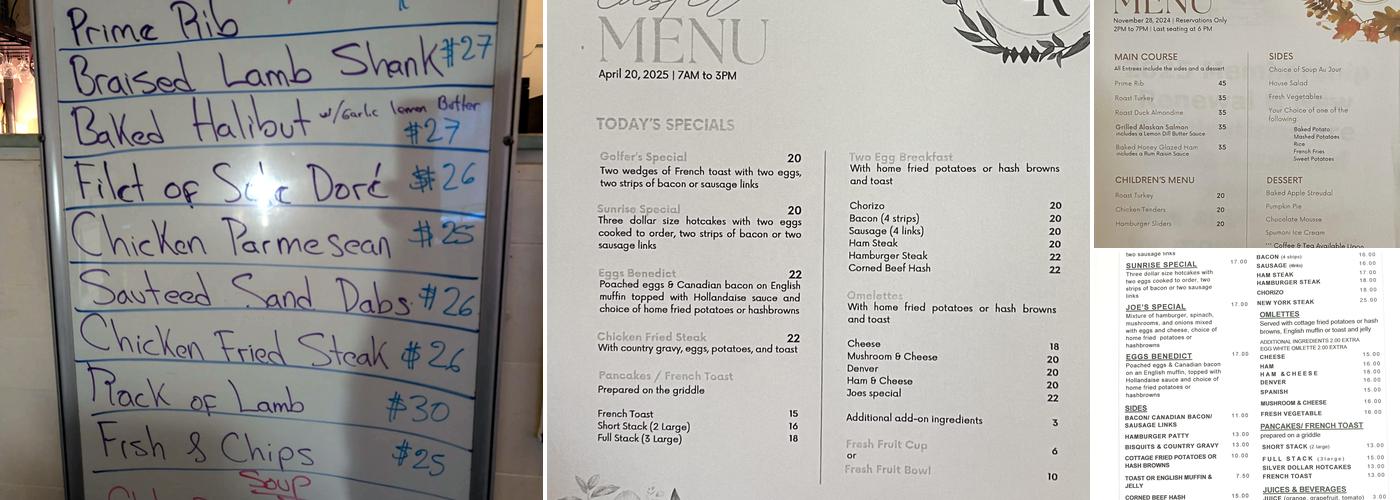 Prime Rib
Braised Lamb Shank $27
Baked Halibut w/Garlic lemon Butter
$27
Filet of Sole Doré $26
Chicken Parmesean $25
Sauteed Sand Dabs $26
Chicken Fried Steak $26
Rack of Lamb $30
Fish & Chips $25
Soup
MENU
April 20, 2025 | 7AM to 3PM
TODAY'S SPECIALS
Golfer's Special 20
Two wedges of French toast with two eggs,
two strips of bacon or sausage links
Sunrise Special 20
Three dollar size hotcakes with two eggs
cooked to order, two strips of bacon or two
sausage links
Eggs Benedict 22
Poached eggs & Canadian bacon on English
muffin topped with Hollandaise sauce and
choice of home fried potatoes or hashbrowns
Chicken Fried Steak 22
With country gravy, eggs, potatoes, and toast
Pancakes / French Toast
Prepared on the griddle
French Toast 15
Short Stack (2 Large) 16
Full Stack (3 Large) 18
Two Egg Breakfast
With home fried potatoes or hash browns
and toast
Chorizo 20
Bacon (4 strips) 20
Sausage (4 links) 20
Ham Steak 20
Hamburger Steak 22
Corned Beef Hash 22
Omelettes
With home fried potatoes or hash browns
and toast
Cheese 18
Mushroom & Cheese 20
Denver 20
Ham & Cheese 20
Joes special 22
Additional add-on ingredients 3
Fresh Fruit Cup 6
or
Fresh Fruit Bowl 10
R
MENU
November 28, 2024 | Reservations Only
2PM to 7PM | Last seating at 6 PM
MAIN COURSE
All Entrees include the sides and a dessert
Prime Rib 45
Roast Turkey 35
Roast Duck Almondine 35
Grilled Alaskan Salmon 35
includes a Lemon Dill Butter Sauce
Baked Honey Glazed Ham 35
includes a Rum Raisin Sauce
CHILDREN'S MENU
Roast Turkey 20
Chicken Tenders 20
Hamburger Sliders 20
SIDES
Choice of Soup Au Jour
House Salad
Fresh Vegetables
Your Choice of one of the
following:
Baked Potato
Mashed Potatoes
Rice
French Fries
Sweet Potatoes
DESSERT
Baked Apple Streudal
Pumpkin Pie
Chocolate Mousse
Spumoni Ice Cream
*** Coffee & Tea Available Upon
two sausage links
SUNRISE SPECIAL 17.00
Three dollar size hotcakes with
two eggs cooked to order, two
strips of bacon or two sausage
links
JOE'S SPECIAL 17.00
Mixture of hamburger, spinach,
mushrooms, and onions mixed
with eggs and cheese, choice of
home fried potatoes or
hashbrowns
EGGS BENEDICT 17.00
Poached eggs & Canadian bacon
on an English muffin, topped with
Hollandaise sauce and choice of
home fried potatoes or
hashbrowns
SIDES
BACON/ CANADIAN BACON/ 11.00
SAUSAGE LINKS
HAMBURGER PATTY 13.00
BISQUITS & COUNTRY GRAVY 13.00
COTTAGE FRIED POTATOES OR 10.00
HASH BROWNS
TOAST OR ENGLISH MUFFIN & 7.50
JELLY
CORNED BEEF HASH 15.00
BACON (4 strips) 16.00
SAUSAGE (4links) 16.00
HAM STEAK 17.00
HAMBURGER STEAK 18.00
CHORIZO 18.00
NEW YORK STEAK 25.00
OMLETTES
Served with cottage fried potatoes or hash
browns, English muffin or toast and jelly
ADDITIONAL INGREDIENTS 2.00 EXTRA
EGG WHITE OMLETTE 2.00 EXTRA
CHEESE 15.00
HAM 16.00
HAM &CHEESE 18.00
DENVER 16.00
SPANISH 15.00
MUSHROOM & CHEESE 16.00
FRESH VEGETABLE 16.00
PANCAKES/ FRENCH TOAST
prepared on a griddle
SHORT STACK (2 large) 13.00
FULL STACK (3large) 15.00
SILVER DOLLAR HOTCAKES 13.00
FRENCH TOAST 13.00
JUICES & BEVERAGES
JUICE (orange, grapefruit, tomato) 3.00